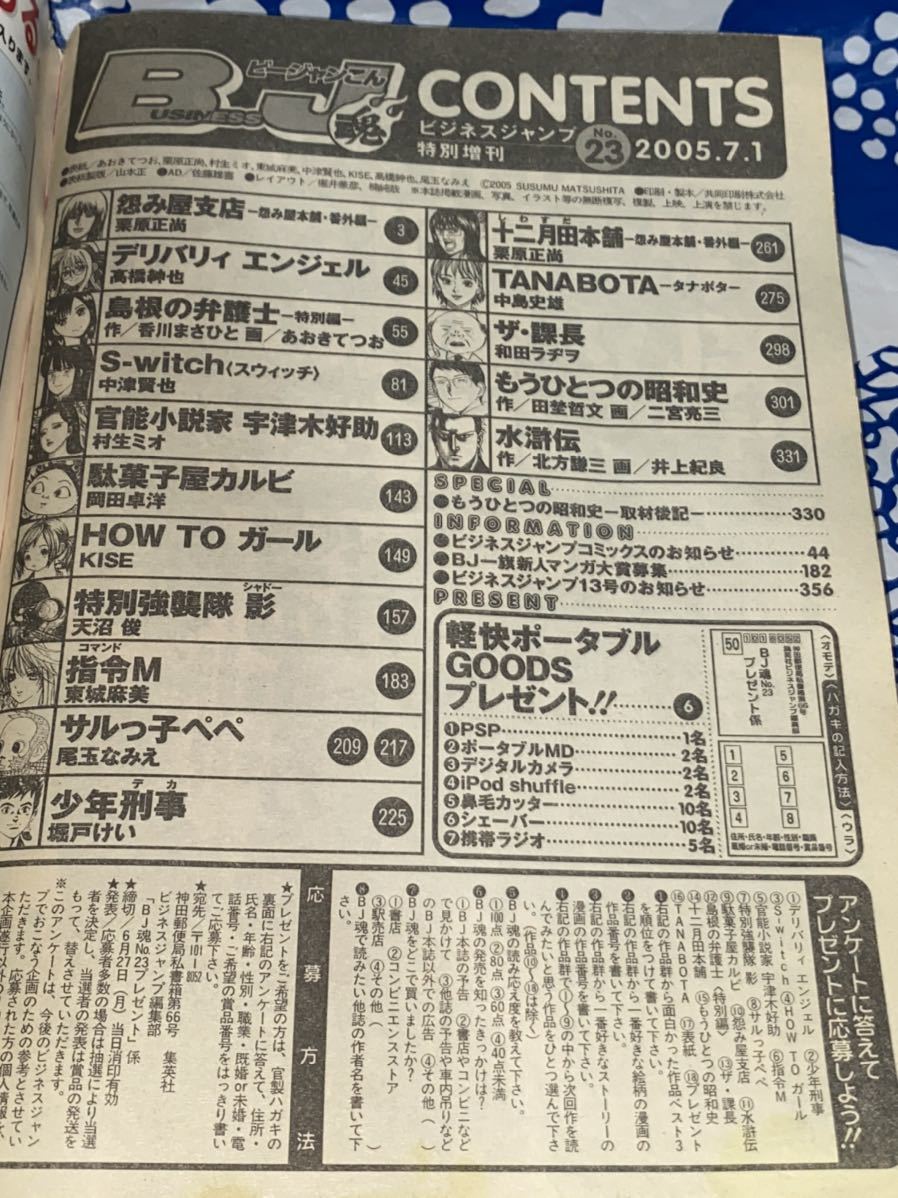 入ります。
ビージャンこん
BUSINESS J魂
CONTENTS
ビジネスジャンプ
特別増刊
No.
23
2005.7.1
●表紙/あおきてつお、栗原正尚、村生ミオ、東城麻美、中津賢也、KISE、高橋紳也、尾玉なみえ ©2005 SUSUMU MATSUSHITA ●印刷・製本/共同印刷株式会社
●表紙製版/山水正 ●AD/佐藤雄喜 ●レイアウト/ ※本誌掲載漫画、写真、イラスト等の無断複写、複製、上映、上演を禁じます。
怨み屋支店―怨み屋本舗・番外編―
栗原正尚
3
デリバリィ エンジェル
高橋紳也
45
島根の弁護士―特別編―
作/香川まさひと 画/あおきてつお
55
S-witch〈スウィッチ〉
中津賢也
81
官能小説家 宇津木好助
村生ミオ
113
駄菓子屋カルビ
岡田卓洋
143
HOW TO ガール
KISE
149
シャドー
特別強襲隊 影
天沼 俊
157
コマンド
指令M
東城麻美
183
サルっ子ペペ
尾玉なみえ
209 217
デカ
少年刑事
堀戸けい
225
しわすだ
十二月田本舗―怨み屋本舗・番外編―
栗原正尚
261
TANABOTA―タナボター
中島史雄
275
ザ・課長
和田ラヂヲ
298
もうひとつの昭和史
作/田埜哲文 画/二宮亮三
301
水滸伝
作/北方謙三 画/井上紀良
331
SPECIAL
●もうひとつの昭和史―取材後記―…………330
INFORMATION
●ビジネスジャンプコミックスのお知らせ…………44
●BJ一旗新人マンガ大賞募集…………182
●ビジネスジャンプ13号のお知らせ…………356
PRESENT
軽快ポータブル
GOODS
プレゼント!!
6
❶PSP…………1名
❷ポータブルMD…………2名
❸デジタルカメラ…………2名
❹iPod shuffle…………2名
❺鼻毛カッター…………10名
❻シェーバー…………10名
❼携帯ラジオ…………5名
〈オモテ〉〈ハガキの記入方法〉〈ウラ〉
50
1018052
神田郵便局私書箱第66号
集英社ビジネスジャンプ編集部
BJ魂No.23
プレゼント係
1
2
3
4
5
6
7
8
住所・氏名・年齢・性別・職業
既婚or未婚・電話番号・賞品番号
アンケートに答えて
プレゼントに応募しよう!!
①デリバリィ エンジェル ②少年刑事
③S-witch ④HOW TO ガール
⑤官能小説家 宇津木好助 ⑥指令M
⑦特別強襲隊 影 ⑧サルっ子ペペ
⑨駄菓子屋カルビ ⑩怨み屋支店 ⑪水滸伝
⑫島根の弁護士〈特別編〉 ⑬ザ・課長
⑭十二月田本舗 ⑮もうひとつの昭和史
⑯TANABOTA ⑰表紙 ⑱プレゼント
❶右記の作品群から面白かった作品ベスト3
を順位をつけて書いて下さい。
❷右記の作品群から一番好きな絵柄の漫画の
作品番号を書いて下さい。
❸右記の作品群から一番好きなストーリーの
漫画の作品番号を書いて下さい。
❹右記の作品群で①～⑨の中から次回作を読
みたいと思う作品をひとつ選んで下さ
い。(作品⑩～⑱は除く)
❺BJ魂の読み応え度を教えて下さい。
①100点 ②80点 ③60点 ④40点未満
❻BJ魂の発売を知ったきっかけは?
①BJ本誌の予告 ②書店やコンビニなど
で見かけて ③他誌の予告や車内吊りなど
のBJ本誌以外での広告 ④その他( )
❼BJ魂をどこで買いましたか?
①書店 ②コンビニエンスストア
③駅売店 ④その他( )
❽BJ魂で読みたい他誌の作者名を書いて下
さい。
応募方法
★プレゼントをご希望の方は、官製ハガキの
裏面に右記のアンケートに答えて、住所・
氏名・年齢・性別・職業・既婚or未婚・電
話番号・ご希望の賞品番号をはっきり書い
てご応募下さい。
★宛先/〒101-8052
神田郵便局私書箱第66号 集英社
ビジネスジャンプ編集部
「BJ魂No.23プレゼント」係
★締切/6月27日(月)当日消印有効
★発表/応募者多数の場合は抽選により当選
者を決定し、当選者の発表は賞品の発送を
もって、替えさせていただきます。
※このアンケートは、今後のビジネスジャン
プでおこなう企画のための参考とさせてい
ただきます。応募された方の個人情報を、
本企画遂行以外の